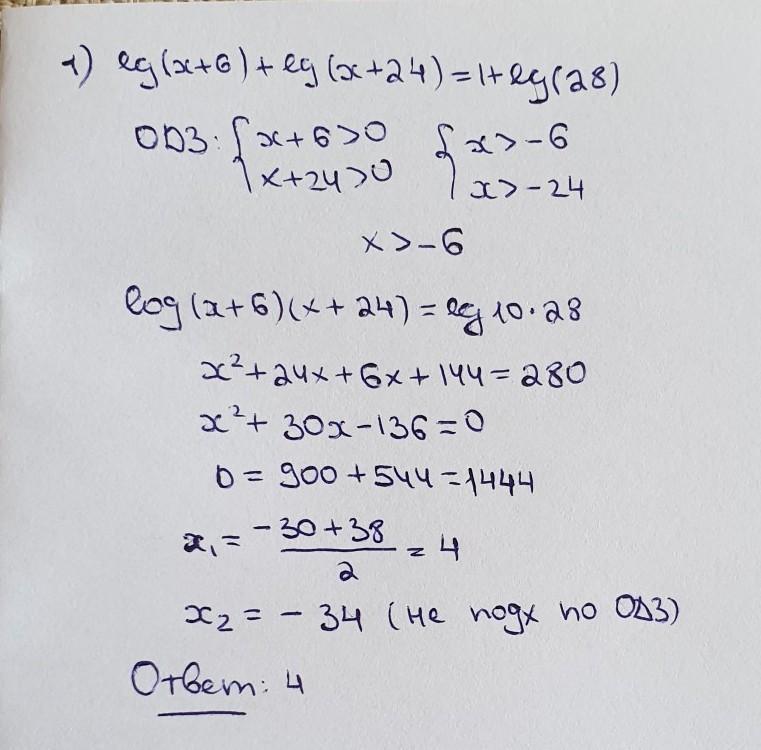 1) lg(x+6)+lg(x+24)=1+lg(28)
ОДЗ: { x+6>0 { x>-6
x+24>0 x>-24
x>-6
log(x+6)(x+24)=lg 10·28
x²+24x+6x+144=280
x²+30x-136=0
D=900+544=1444
x₁= (-30+38)/2 = 4
x₂ = -34 (не подх по ОДЗ)
Ответ: 4